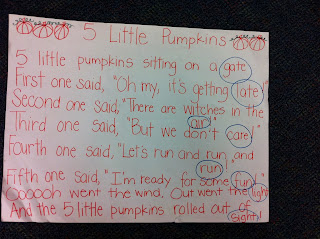 5 Little Pumpkins
5 little pumpkins sitting on a gate
First one said, "Oh my, it's getting late!"
Second one said, "There are witches in the
air!"
Third one said, "But we don't care!"
Fourth one said, "Let's run and run and
run!"
Fifth one said, "I'm ready for some fun!"
Oooooh went the wind. Out went the light
And the 5 little pumpkins rolled out of
sight!